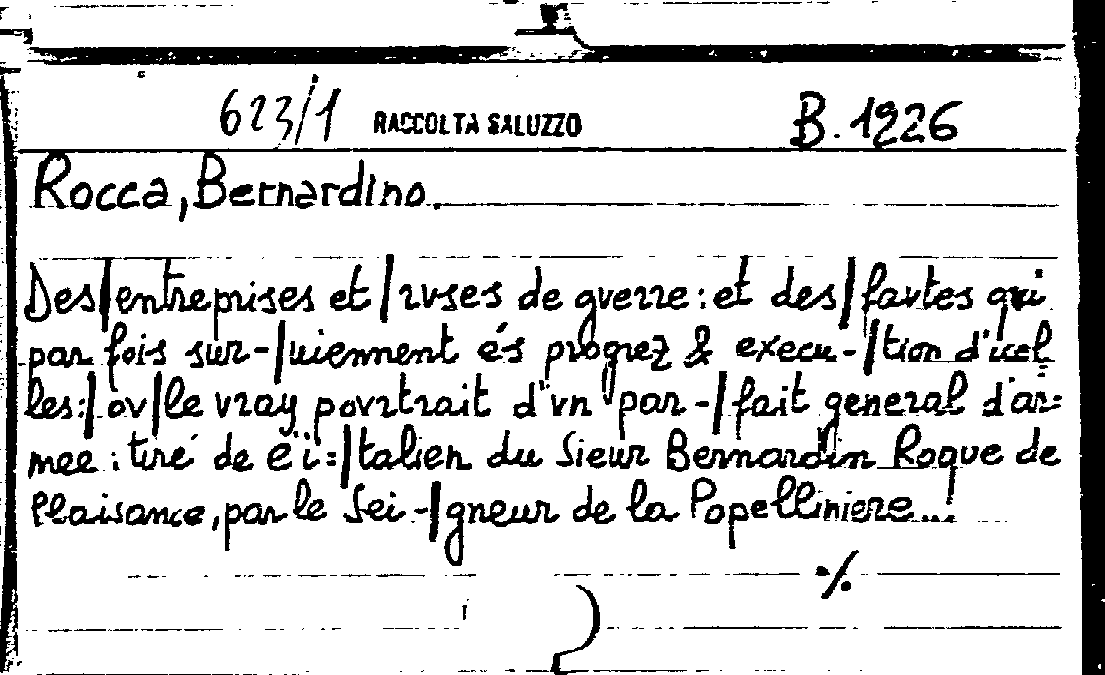 623/1 RACCOLTA SALUZZO B.1226
Rocca, Bernardino.
Des|entreprises et|rvses de gverre: et des|favtes qui
par fois sur-|uiennent és progrez & execu-|tion d'icel
les:|ov|le vray povrtrait d'vn par-|fait general d'ar=
mee: tiré de l'i=|talien du Sieur Bernardin Roque de
Plaisance, par le Sei-|gneur de la Popelliniere...|
./.